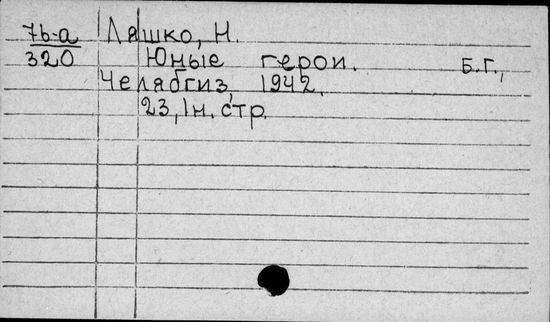 7б-а Ляшко, Н.
320 Юные герои. Б.Г.,
Челябгиз, 1942.
23, 1н. стр.